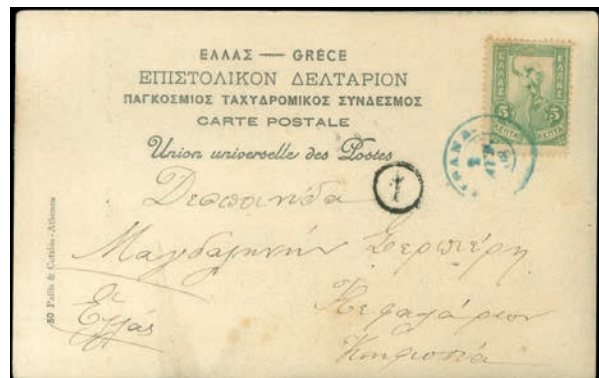 ΕΛΛΑΣ — GRÈCE
ΕΠΙΣΤΟΛΙΚΟΝ ΔΕΛΤΑΡΙΟΝ
ΠΑΓΚΟΣΜΙΟΣ ΤΑΧΥΔΡΟΜΙΚΟΣ ΣΥΝΔΕΣΜΟΣ
CARTE POSTALE
Union universelle des Postes
ΕΛΛΑΣ
5 5
ΛΕΠΤΑ ΛΕΠΤΑ
1
Δεσποινίδα
Μαγδαληνήν Σερπιέρη
Κεφαλάριον
Κηφισσιά
50 Pallis & Cotzias-Athènes